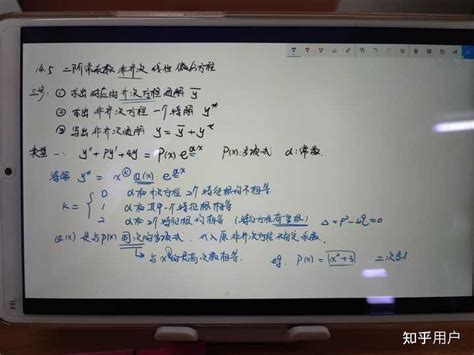 14.5 二阶常系数非齐次线性微分方程
三步: ① 求出对应的齐次方程通解 ȳ
② 求出非齐次方程一个特解 y*
③ 写出非齐次通解 y = ȳ + y*
类型一: y''+py'+qy = P(x) e^{αx} P(x):多项式 α:常数.
特解 y* = x^k Q(x) e^{αx}
k = { 0 α和齐次方程2个特征根均不相等
1 α和其中一个特征根相等
2 α和2个特征根均相等 (特征方程有重根) Δ = p²-4q = 0
Q(x) 是与P(x) 同次的多项式. 代入原非齐次方程 系数.
与x的最高次数相等. eg. P(x) = x²+3 二次多
HL
知乎用户